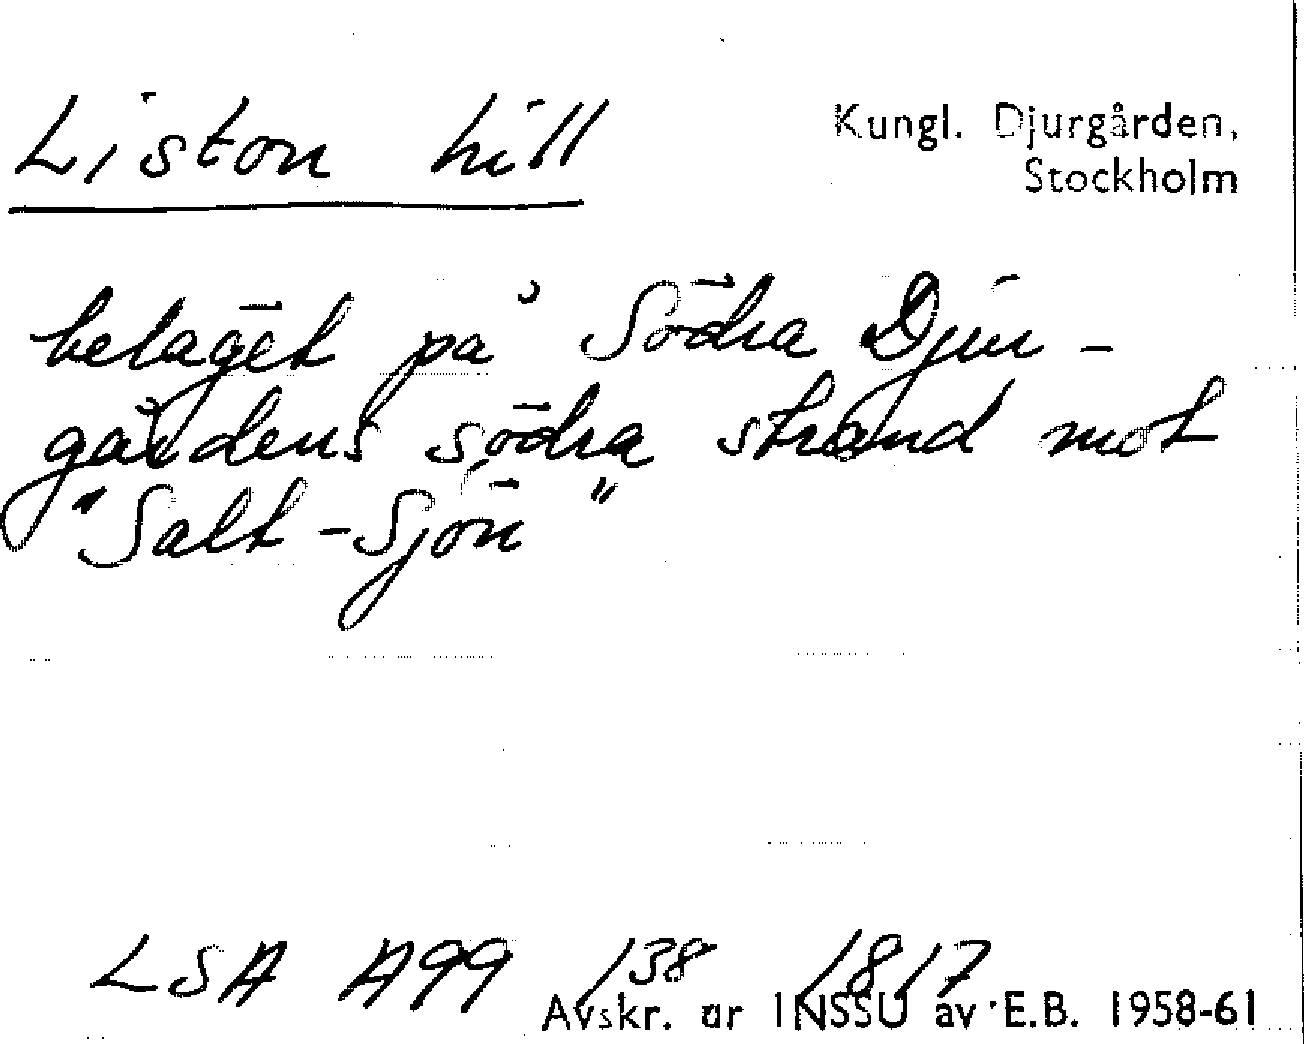 Liston hill
Kungl. Djurgården,
Stockholm
beläget på Södra Djur-
gårdens södra strand mot
"Salt-Sjön"
LSA A99 /38 1817
Avskr. ur INSSU av E.B. 1958-61